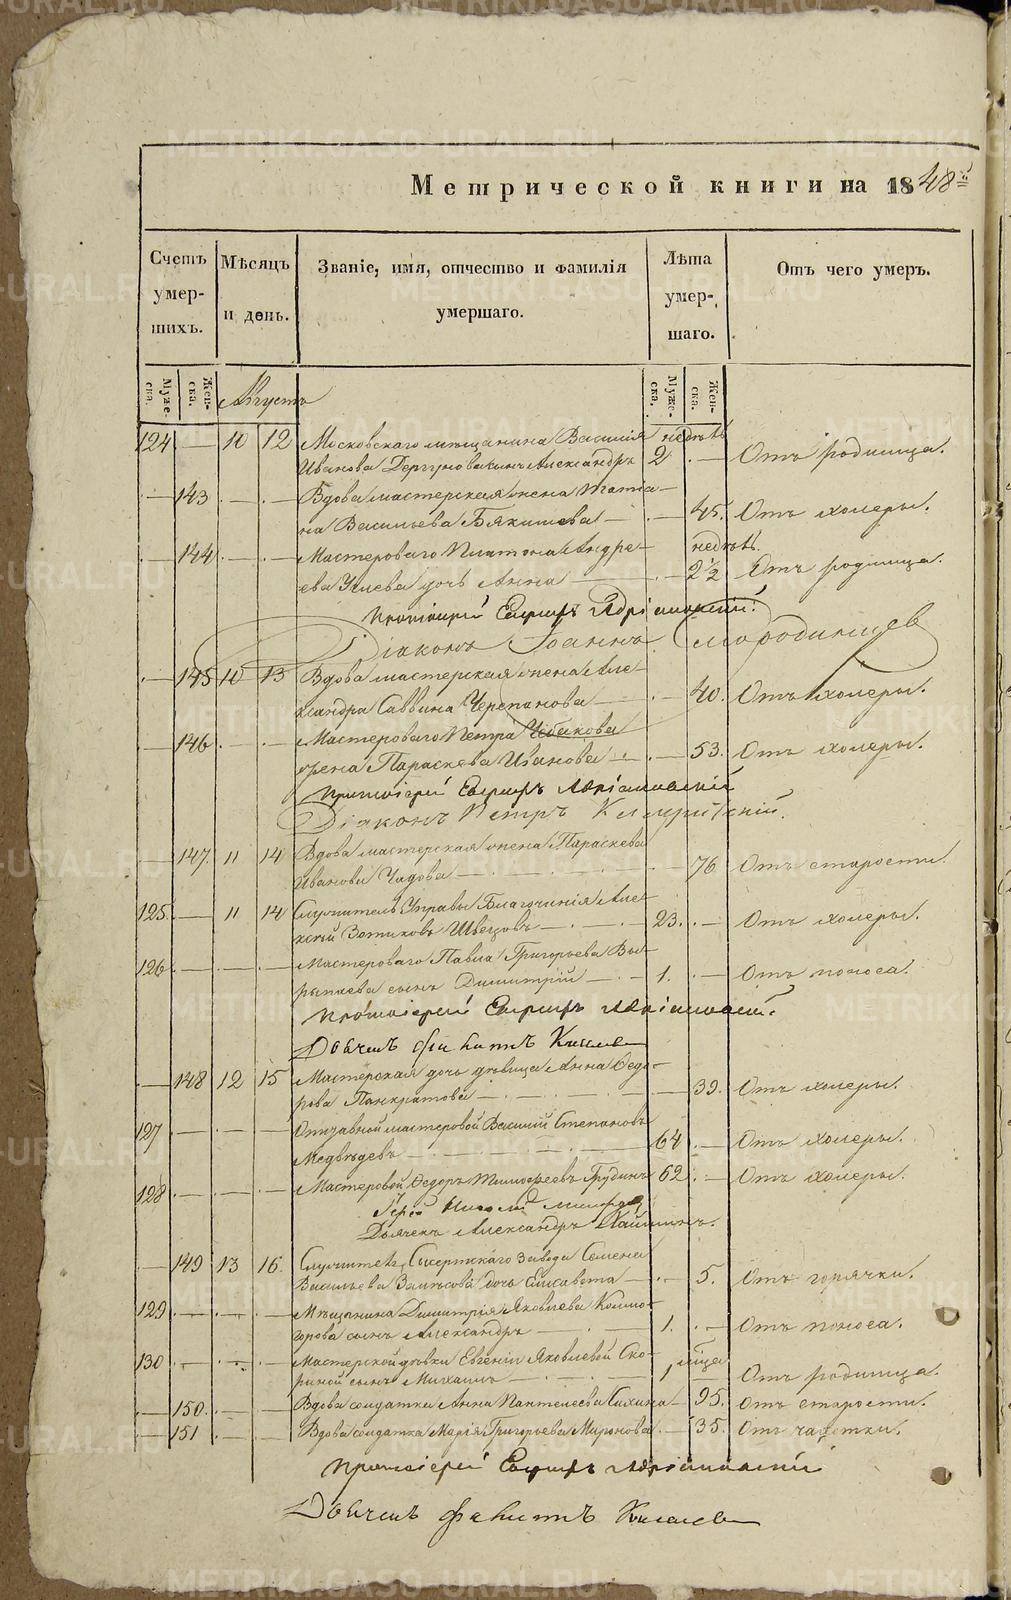 Метрической книги на 1848й
Счетъ умер-шихъ.
Мѣсяцъ и день.
Званіе, имя, отчество и фамилія умершаго.
Лѣта умер-шаго.
Отъ чего умеръ.
Муже-ска. Жен-ска. Августъ Муже-ска. Жен-ска.
124 — 10 12 Московскаго мѣщанина Василія недѣль
Иванова сынъ Александръ 2 . — Отъ родимца.
— 143 . — . — Вдова мастерская жена Татіа-
на Васильева — . — 45. Отъ холеры.
— 144 . — . — Мастероваго Платона Андре- недѣль.
ева дочь Анна — . — 2½ Отъ родимца.
Протоіерей
Діаконъ Іоаннъ
— 145 10 13 Вдова мастерская жена Але-
ксандра Саввина Черепанова — . — 40. Отъ холеры.
— 146 . — . — Мастероваго Петра Чебакова
жена Параскева Иванова — . — 53. Отъ холеры.
Протоіерей
Діаконъ Петръ
— 147. 11 14 Вдова мастерская жена Параскева
Иванова Чадова — . — 76 Отъ старости.
125 — 11 14 Служитель Управы Благочинія Але-
ксѣй Зотиковъ Швецовъ — 23. . — Отъ холеры.
126 . — . — . — Мастероваго Павла Григорьева Вы-
рыпаева сынъ Димитрій — 1. . — Отъ поноса.
Протоіерей
— 148 12 15 Мастерская дочь дѣвица Анна Ѳедо-
рова Панкратова — . — 39. Отъ холеры.
127 . — . — . — Отставной мастеровой Василій Степановъ
Медвѣдевъ — 64 . — Отъ холеры.
128 . — . — . — Мастеровой Ѳедоръ Тимоѳеевъ Грудинъ 62 . — Отъ холеры.
Іерей Николай
Дьячекъ Александръ
— 149 13 16. Служителя Сысертскаго завода Семена
Васильева дочь Елисавета — . — 5. Отъ горячки.
129 . — . — . — Мѣщанина Димитрія Яковлева Колмо-
горова сынъ Александръ — 1. . — Отъ поноса.
130 . — . — . — Мастерской дѣвки Евгеніи Яковлевой Ско-
риной сынъ Михаилъ — 1 мѣсца — Отъ родимца.
— 150. . — . — Вдова солдатка Анна Пантелеева — 95. Отъ старости.
— 151 . — . — Вдова солдатка Марія Григорьева Миронова . — 35. Отъ чахотки.
Протоіерей
METRIKI.GASO-URAL.RU